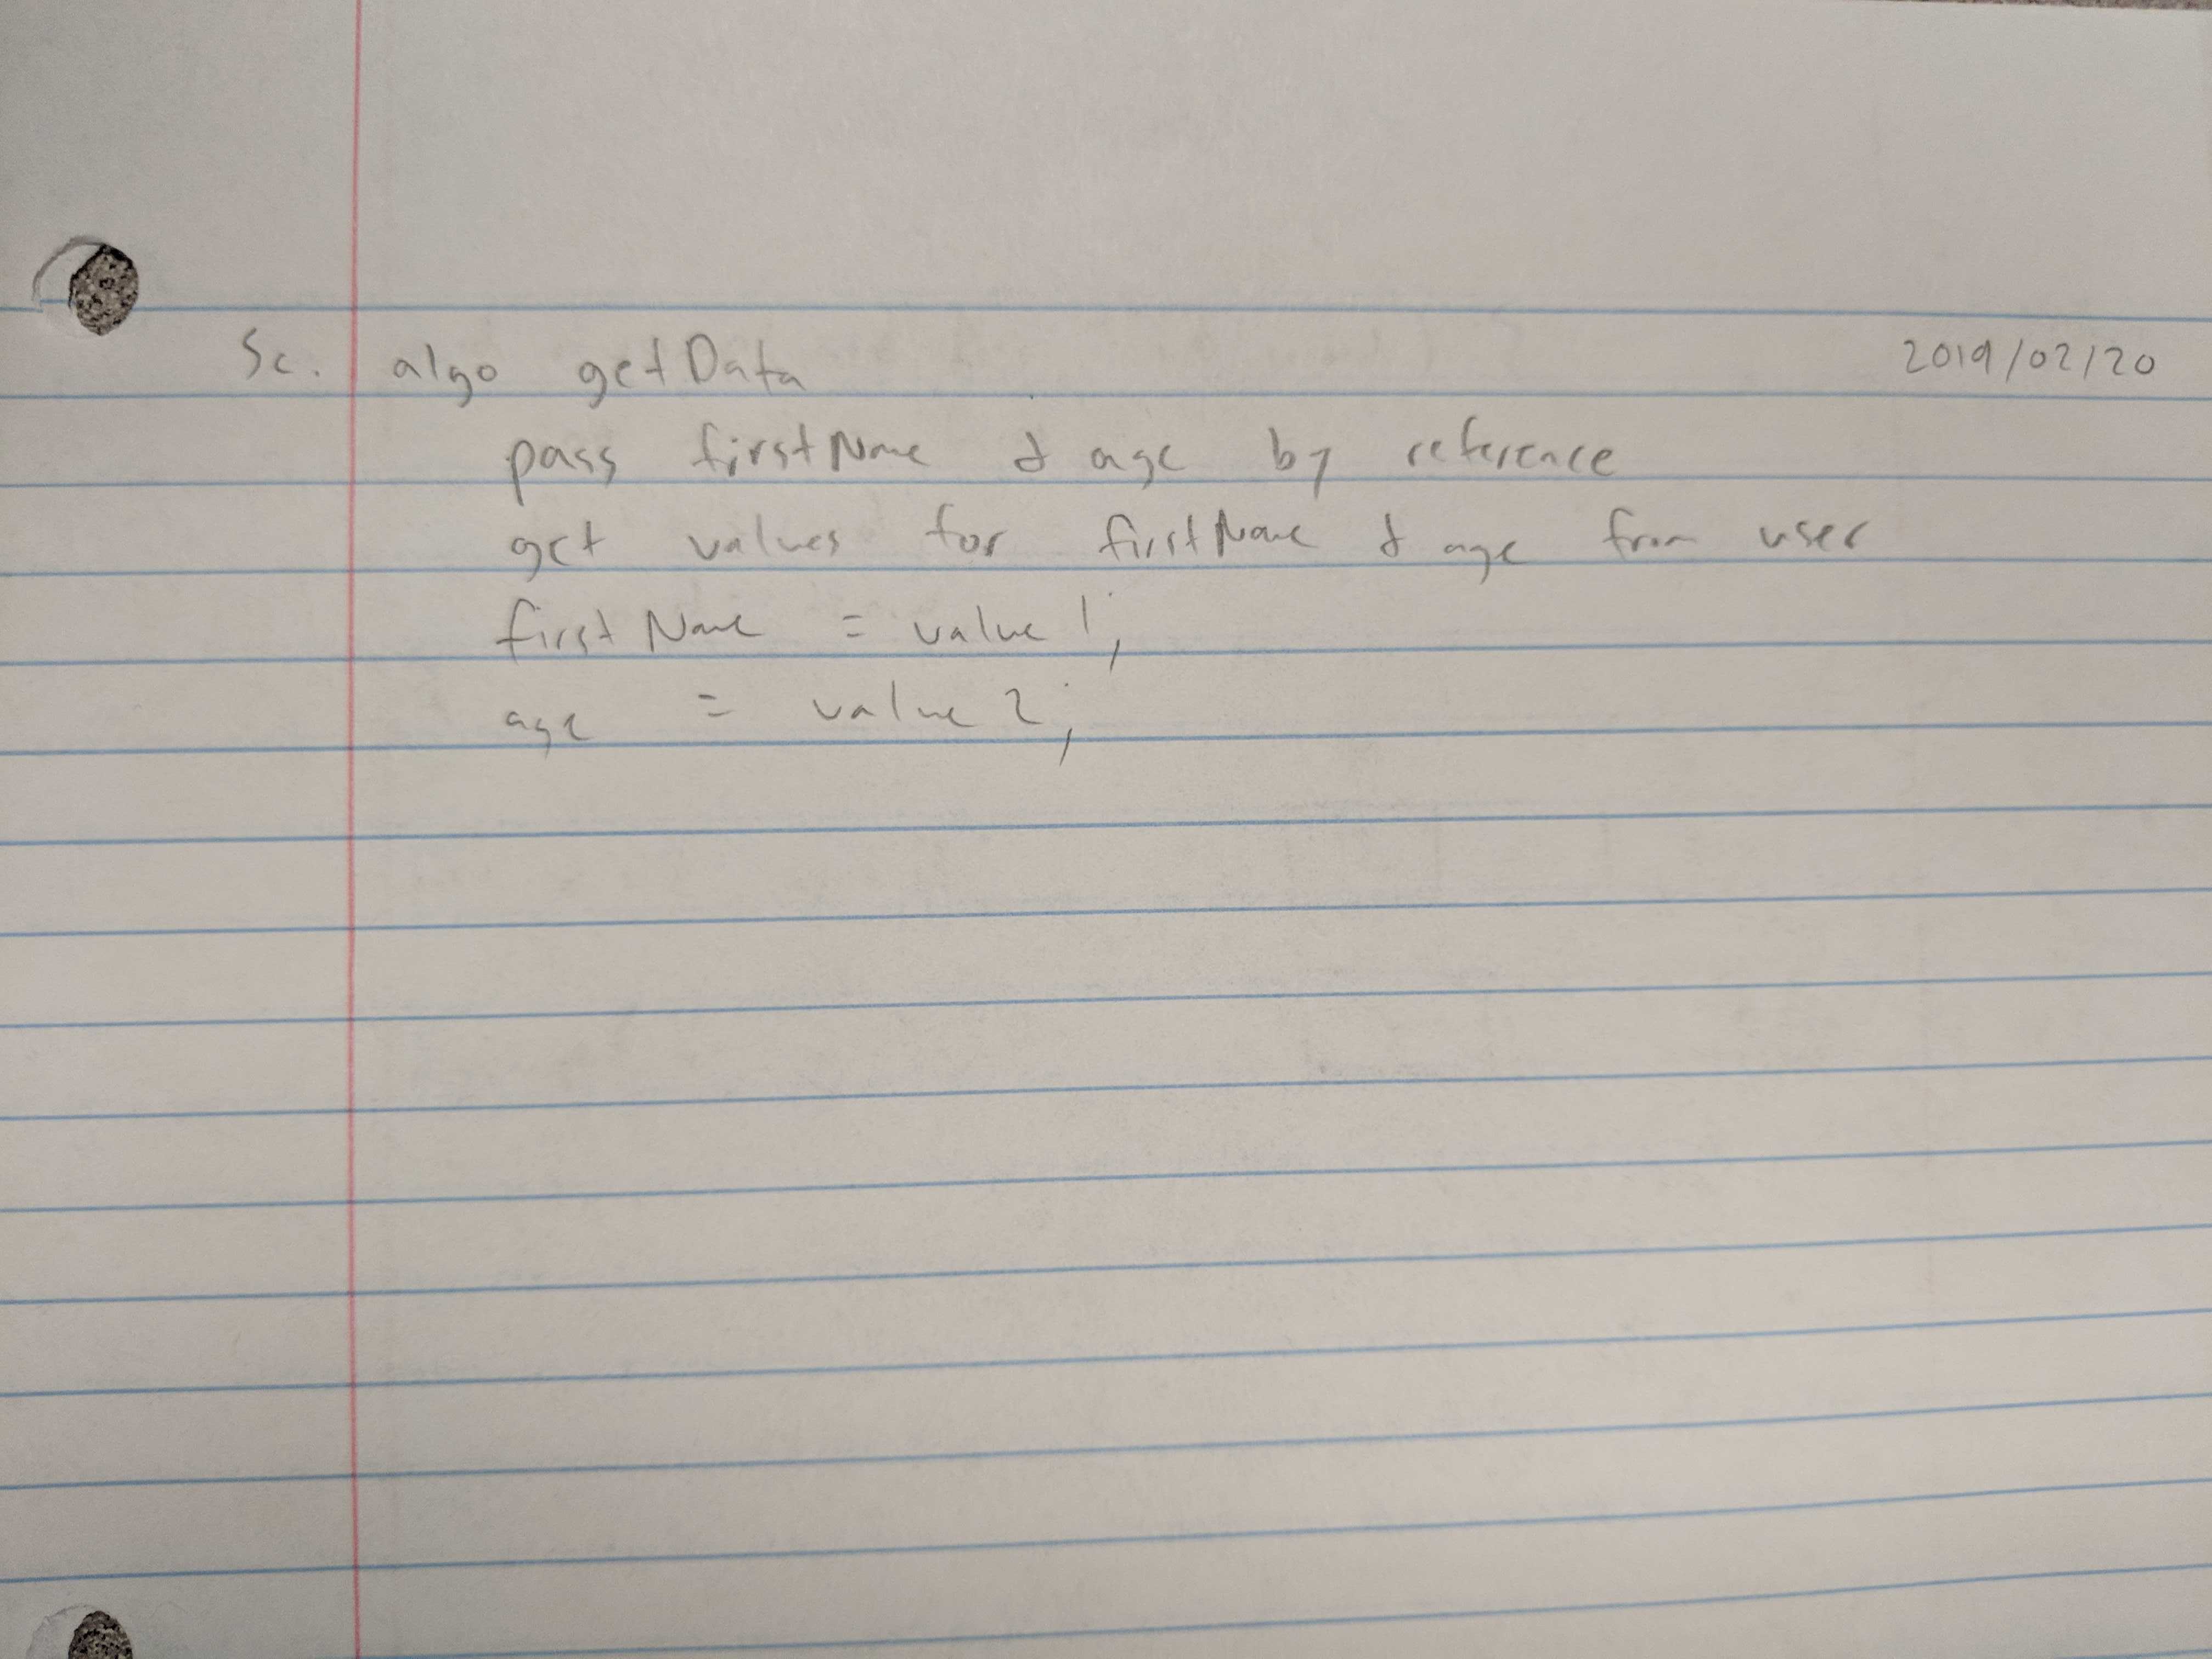 5c. algo getData 2019/02/20
pass firstName & age by reference
get values for firstName & age from user
firstName = value 1;
age = value 2;